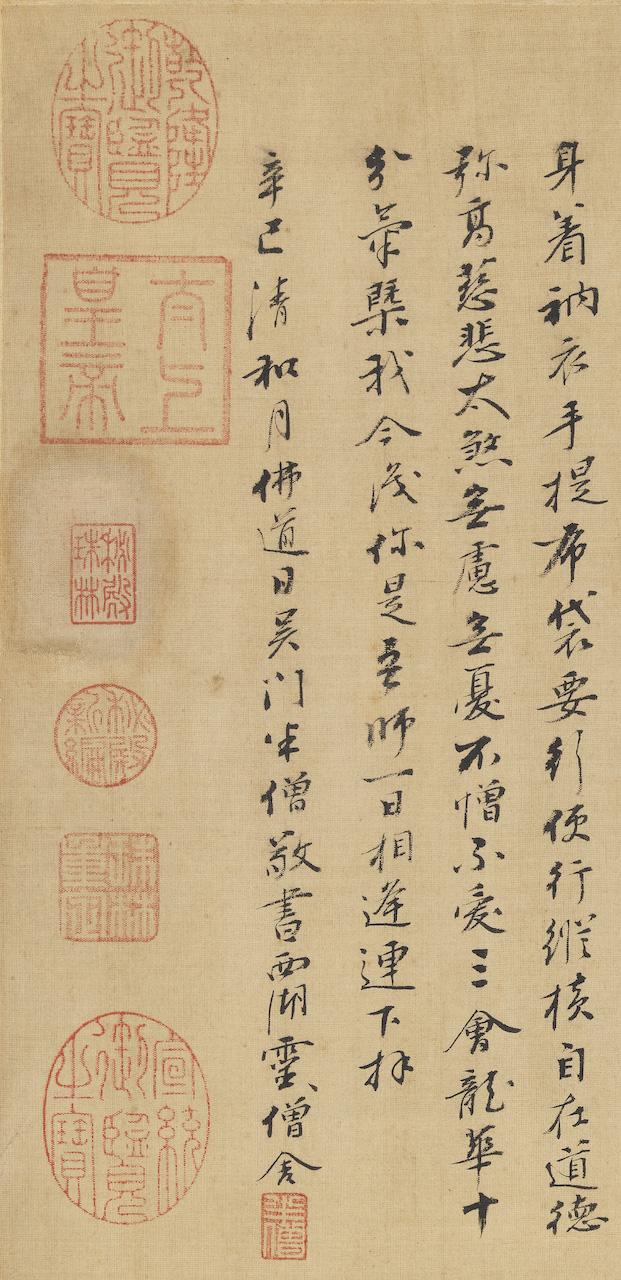 身着衲衣手提布袋要行便行縱橫自在道德
弥高慈悲太煞無慮無憂不憎不愛三會龍華十
分氣槩我今識你是吾師一日相逢連下拜
辛巳清和月佛道日吴门半僧敬書西湖靈僧舍
半僧
乾隆御覽之寶
太上皇帝
秘殿珠林
秘殿新編
珠林重定
宣統御覽之寶